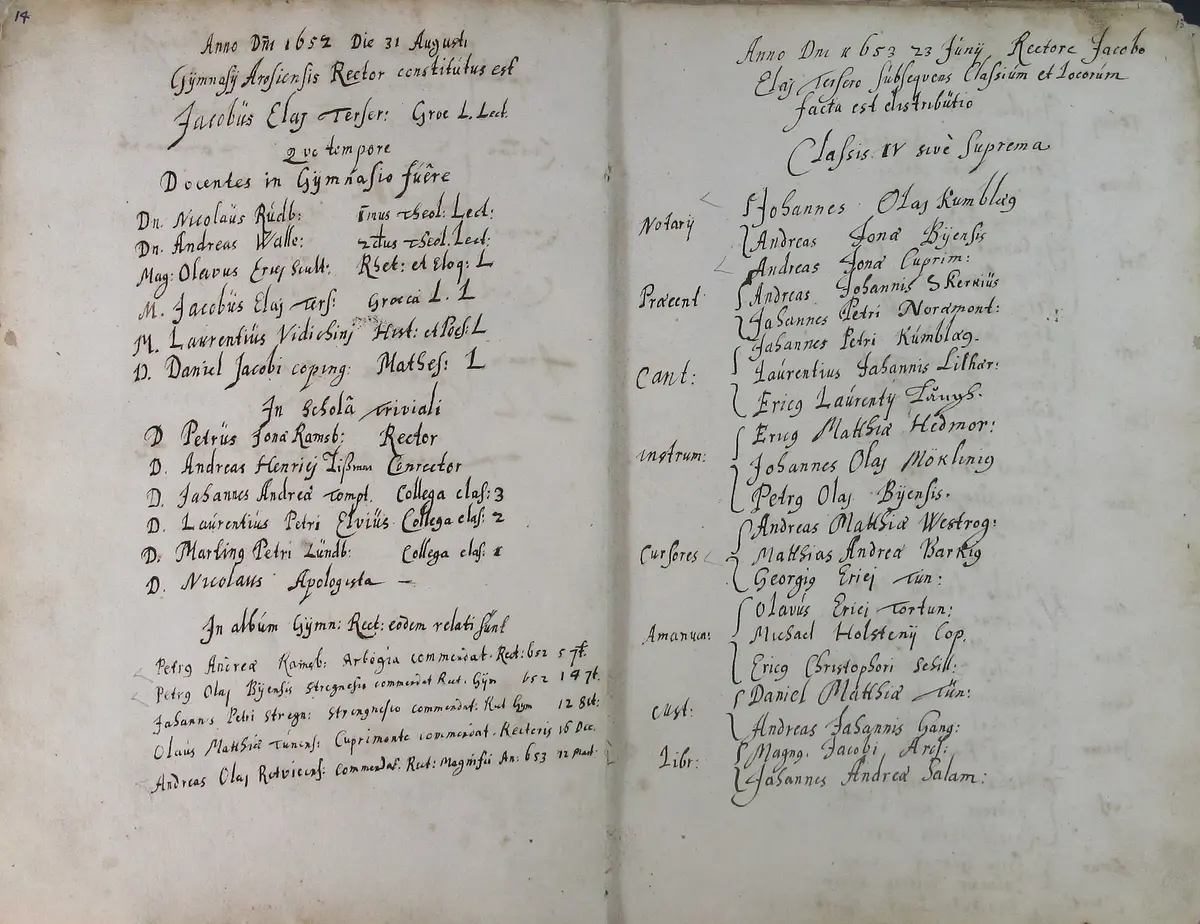 14
Anno Dñi 1652 Die 31 Augusti
Gÿmnasÿ Arosiensis Rector constitútus est
Jacobüs Elaj Terser: Groe L. Lect.
Quo tempore
Docentes in Gÿmnasio fúêre
Dn. Nicolaüs Rúdb: Imus Theol: Lect:
Dn. Andreas Walle: 2dus Theol. Lect:
Mag: Olavus Ericj Scult: Rhet: et Eloq: L
M. Jacobüs Elaj Ters: Groecæ L. L
M. Laurentiús Vidichinj Hist: et Poës: L
D. Daniel Jacobi coping: Mathes: L
In Scholâ Triviali
D Petrüs Jonæ Ramsb: Rector
D. Andreas Henricj Conrector
D. Johannes Andreæ Tompt. Collega clas: 3
D. Laúrentius Petri Elviüs Collega clas: 2
D. Marting Petri Lúndb: Collega clas: 1
D. Nicolaus Apologista —
In albúm Gÿmn: Rect: eodem relati súnt
Petrg Andreæ Ramsb: Arbogia commendat. Rect: 652 5 7t.
Petrg Olaj Bÿensis Stregnesio commendat Rect. Gÿm 652 18 7t.
Johannes Petri Stregn: Strengnesio commendat. Rect Gÿm 12 8ct:
Olaús Matthiæ Túnens: Cuprimonte commendat. Rectoris 16 Dec.
Andreas Olaj Retvicens: commendat. Rect: Magnifici An: 653 12 Mart:
Anno Dni 1653 23 Júnÿ, Rectore Jacobo
Elaj Tersero súbseqvens Classiúm et Locorúm
facta est distribútio
Classis IV sivè Suprema
Notarÿ Johannes Olaj Kumblæg
Andreas Jonæ Bÿensis
Andreas Jonæ Cuprim:
Præcent Andreas Johannis Skerkiüs
Johannes Petri Noræmont:
Johannes Petri Kúmblæg.
Cant: Laurentius Johannis Lithær:
Ericg Laúrentÿ Långh.
Instrum: Ericg Matthiæ Hedmor:
Johannes Olaj Möklinig
Petrg Olaj Bÿensis.
Andreas Matthiæ Westrog:
Cursores Matthias Andreæ Barkig
Georgig Ericj Tún:
Olavús Ericj Tortun:
Amanuen: Michael Holstenÿ Cop.
Ericg Christophori Schill:
Cust: Daniel Matthiæ Tún:
Andreas Johannis Gang:
Libr: Magng. Jacobi Aros:
Johannes Andreæ Salam: